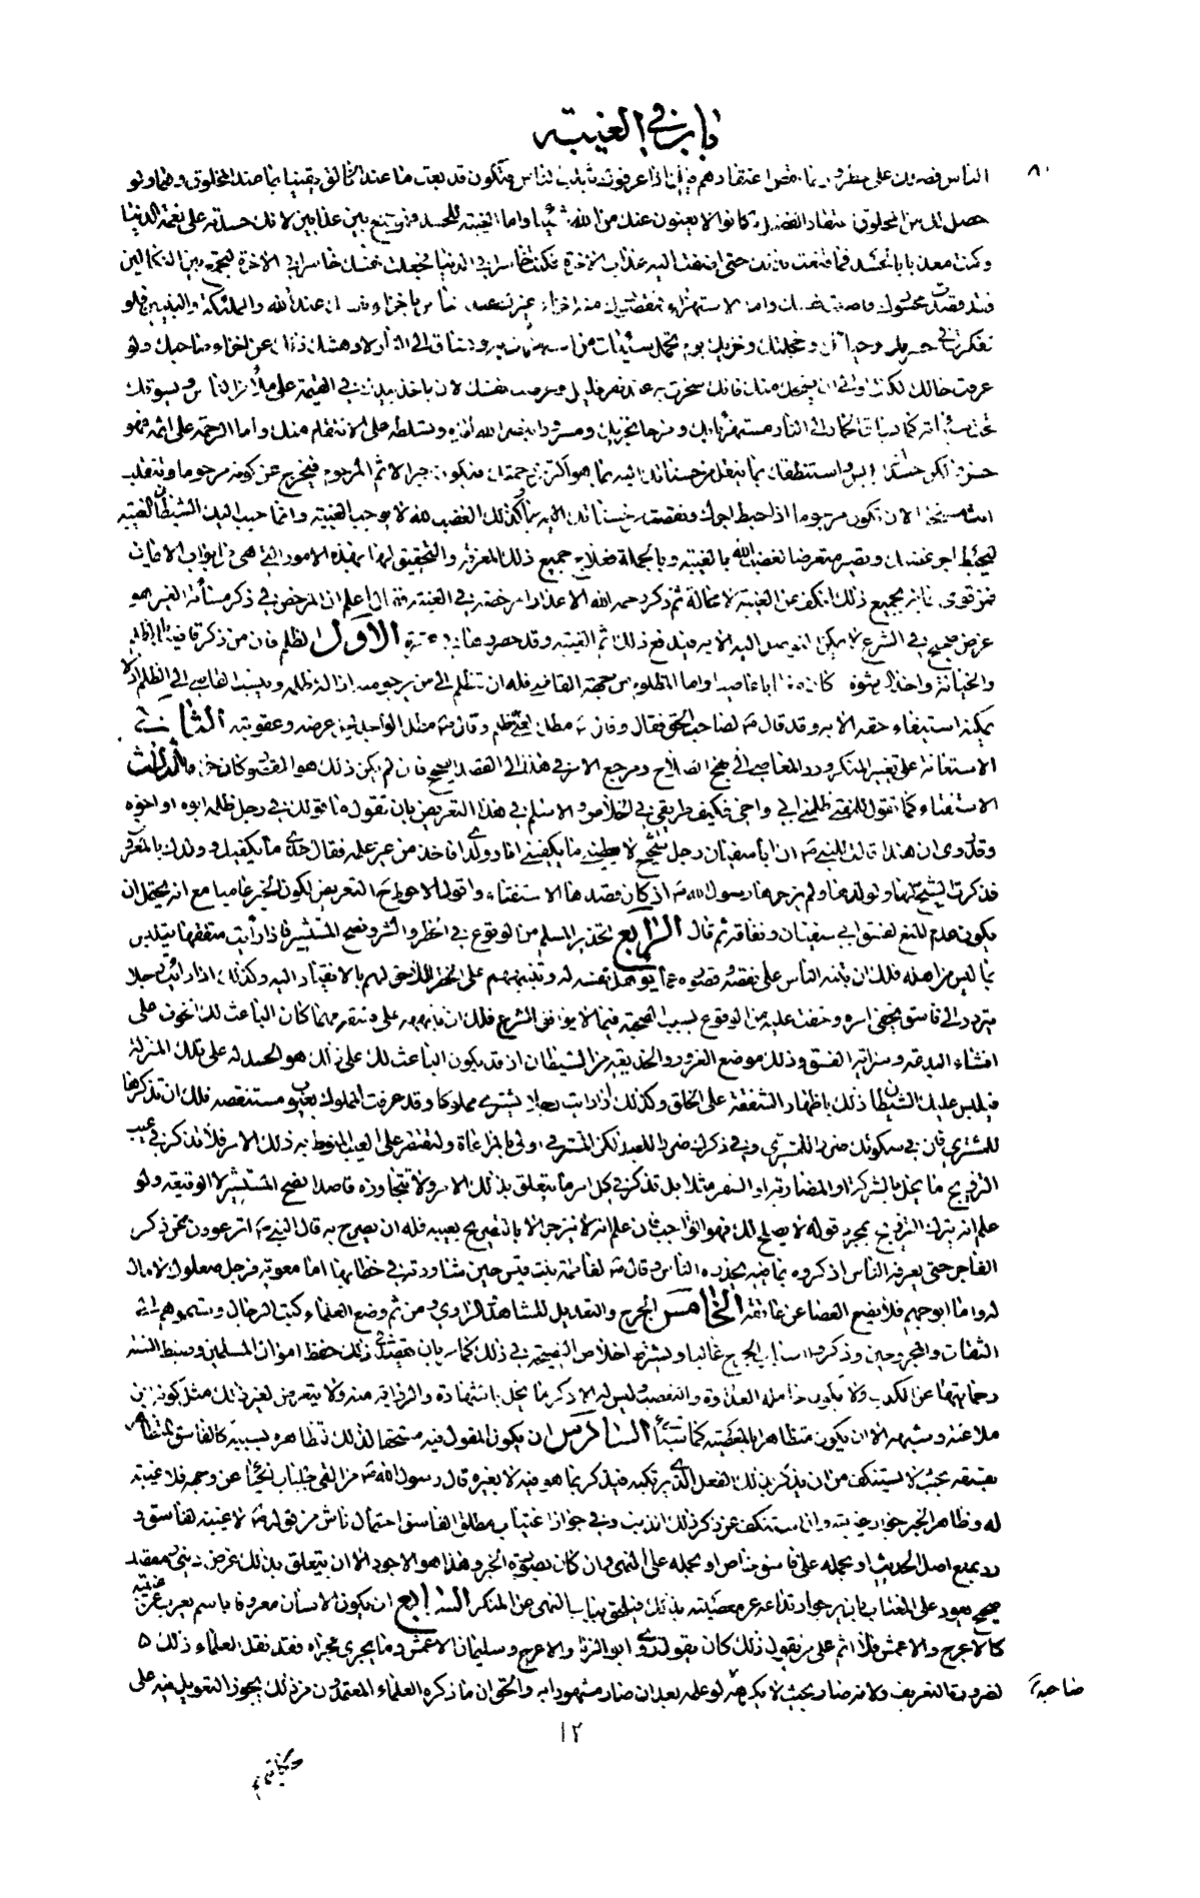 باب في الغيبة
٨٠
الناس فضلك على خطر وربما نقص اعتقادهم فيك إذا عرفوك بثلب الناس فتكون قد بعت ما عند الخالق يقينا بما عند المخلوق وهما ولو
حصل لك من المخلوق اعتقاد الفضل لكانوا لا يغنون عنك من الله شيئا واما الغيبة للحسد فهو جمع بين عذابين لانك حسدته على نعمة الدنيا
وكنت معذبا بالحسد فما قنعت بذلك حتى اضفت اليه عذاب الاخرة فكنت خاسرا في الدنيا فجعلت نفسك خاسرا في الاخرة لتجمع بين النكالين
فقد قصدت محسودك فاصبت نفسك واما الاستهزاء فمقصودك منه اخزاء غيرك عند الناس باخزاء نفسك عند الله والملائكة والنبيين فلو
تفكرت في حسرتك وحيائك وخجلتك وخزيك يوم تحمل سيئات من استهزأت به وتساق الى النار لادهشك ذلك عن اخزاء صاحبك ولو
عرفت حالك لكنت اولى ان يضحك منك فانك سخرت به عند نفر قليل وعرضت نفسك لان ياخذ بيدك في القيمة على ملأ من الناس ويسوقك
تحت سيئاته كما يساق الحمار الى النار مستهزئا بك وفرحا بخزيك ومسرورا بنصر الله اياه وتسلطه على الانتقام منك واما الرحمة على اثمه فهو
حسن ولكن حسدك ابليس واستنطقك بما ينقل من حسناتك اليه بما هو اكثر من رحمتك فيكون جبرا لاثم المرحوم فيخرج عن كونه مرحوما وتنقلب
انت مستحقا لان تكون مرحوما اذا حبط اجرك ونقصت من حسناتك الاثم وكذلك الغضب لله لا يوجب الغيبة وانما حبب اليك الشيطان الغيبة
ليحبط اجر غضبك وتصير متعرضا لغضب الله بالغيبة وبالجملة فعلاج جميع ذلك المعرفة والتحقيق لها بهذه الامور التي هي من ابواب الايمان
فمن قوى ايمانه بجميع ذلك انكف عن الغيبة لا محالة ثم ذكر رحمه الله الاعذار المرخصة في الغيبة فقال اعلم ان المرخص في ذكر مساءة الغير هو
غرض صحيح في الشرع لا يمكن التوصل اليه الا به فيدفع ذلك اثم الغيبة وقد حصروها في عشرة الاول الظلم فان من ذكر قاضيا بالظلم
والخيانة واخذ الرشوة كان مغتابا عاصيا واما المظلوم من جهة القاضي فله ان يتظلم الى من يرجو منه ازالة ظلمه وينسب القاضي الى الظلم اذ لا
يمكنه استيفاء حقه الا به وقد قال ص لصاحب الحق مقال وقال ص مطل الغنى ظلم وقال ص مطل الواجد يحل عرضه وعقوبته الثانى
الاستعانة على تغيير المنكر ورد المعاصي الى منهج الصلاح ومرجع الامر في هذا الى القصد الصحيح فان لم يكن ذلك هو المقصود كان حراما الثالث
الاستفتاء كما تقول للمفتي ظلمني ابي واخي فكيف طريقي في الخلاص والاسلم في هذا التعريض بان تقول ما قولك في رجل ظلمه ابوه او اخوه
وقد روى ان هندا قالت للنبي ص ان ابا سفيان رجل شحيح لا يعطيني ما يكفيني انا وولدي افآخذ من غير علمه فقال خذي ما يكفيك وولدك بالمعروف
فذكرت الشح لها ولولدها ولم يزجرها رسول الله ص اذ كان قصدها الاستفتاء واقول الاحوط التعريض لكون الخبر عاميا مع انه يحتمل ان
يكون عدم المنع لفسق ابي سفيان ونفاقه ثم قال الرابع تحذير المسلم من الوقوع في الخطر والشر ونصح المستشير فاذا رأيت متفقها يتلبس
بما ليس من اهله فلك ان تنبه الناس على نقصه وقصوره عما يؤهل نفسه له وتنبيههم على الخطر اللاحق لهم بالانقياد اليه وكذلك اذا رأيت رجلا
يتردد الى فاسق يخفى امره وخفت عليه من الوقوع بسبب الصحبة فيما لا يوافق الشرع فلك ان تنبهه على فسقه مهما كان الباعث لك الخوف على
افشاء البدعة وسراية الفسق وذلك موضع الغرور والخديعة من الشيطان اذ قد يكون الباعث لك على ذلك هو الحسد له على تلك المنزلة
فيلبس عليك الشيطان ذلك باظهار الشفقة على الخلق وكذلك اذا رايت رجلا يشتري مملوكا وقد عرفت المملوك بعيوب مستنقصة فلك ان تذكرها
للمشتري فان في سكوتك ضررا للمشتري وفي ذكرك ضررا للعبد لكن المشتري اولى بالمراعاة ولتقتصر على العيب المنوط به ذلك الامر فلا تذكر في عيب
التزويج ما يخل بالشركة او المضاربة او السفر مثلا بل تذكر في كل امر ما يتعلق بذلك الامر ولا تتجاوزه قاصدا نصح المستشير لا الوقيعة ولو
علم انه يترك التزويج بمجرد قوله لا يصلح لك فهو الواجب فان علم انه لا ينزجر الا بالتصريح بعيبه فله ان يصرح به قال النبي ص اترعوون عن ذكر
الفاجر حتى يعرفه الناس اذكروه بما فيه يحذره الناس وقال ص لفاطمة بنت قيس حين شاورته في خطابها اما معوية فرجل صعلوك لا مال
له واما ابو جهم فلا يضع العصا عن عاتقه الخامس الجرح والتعديل للشاهد والراوي ومن ثم وضع العلماء كتب الرجال وقسموهم الى
الثقات والمجروحين وذكروا اسباب الجرح غالبا ويشترط اخلاص النصيحة في ذلك كما مر بان يقصد في ذلك حفظ اموال المسلمين وضبط السنة
وحمايتها عن الكذب ولا يكون حامله العداوة والتعصب وليس له الا ذكر ما يخل بالشهادة والرواية منه ولا يتعرض لغير ذلك مثل كونه ابن
ملاعنة وشبهه الا ان يكون متظاهرا بالمعصية كما سيأتي السادس ان يكون المقول فيه مستحقا لذلك لتظاهره بسببه كالفاسق المتظاهر
بفسقه بحيث لا يستنكف من ان يذكر بذلك الفعل الذي يرتكبه فيذكر بما هو فيه لا بغيره قال رسول الله ص من القى جلباب الحياء عن وجهه فلا غيبة
له وظاهر الخبر جواز غيبته وان استنكف عن ذكر ذلك الذنب وفي جواز اغتياب مطلق الفاسق احتمال ناش من قوله ص لا غيبة لفاسق و
رد بمنع اصل الحديث او بحمله على فاسق خاص او بحمله على النهي وان كان بصورة الخبر وهذا هو الاجود الا ان يتعلق بذلك غرض ديني ومقصد
صحيح يعود على المغتاب بان يرجو ارتداعه عن معصيته بذلك فيلحق بباب النهي عن المنكر السابع ان يكون الانسان معروفا باسم يعرب عن غيبته
كالاعرج والاعمش فلا اثم على من يقول ذلك كان يقول روى ابو الزناد الاعرج وسليمان الاعمش وما يجري مجراه فقد نقل العلماء ذلك
لضرورة التعريف ولانه صار بحيث لا يكرهه صاحبه لو علمه بعد ان صار مشهورا به والحق ان ما ذكره العلماء المعتمدون من ذلك يجوز التعويل فيه على
١٢
حكايتهم